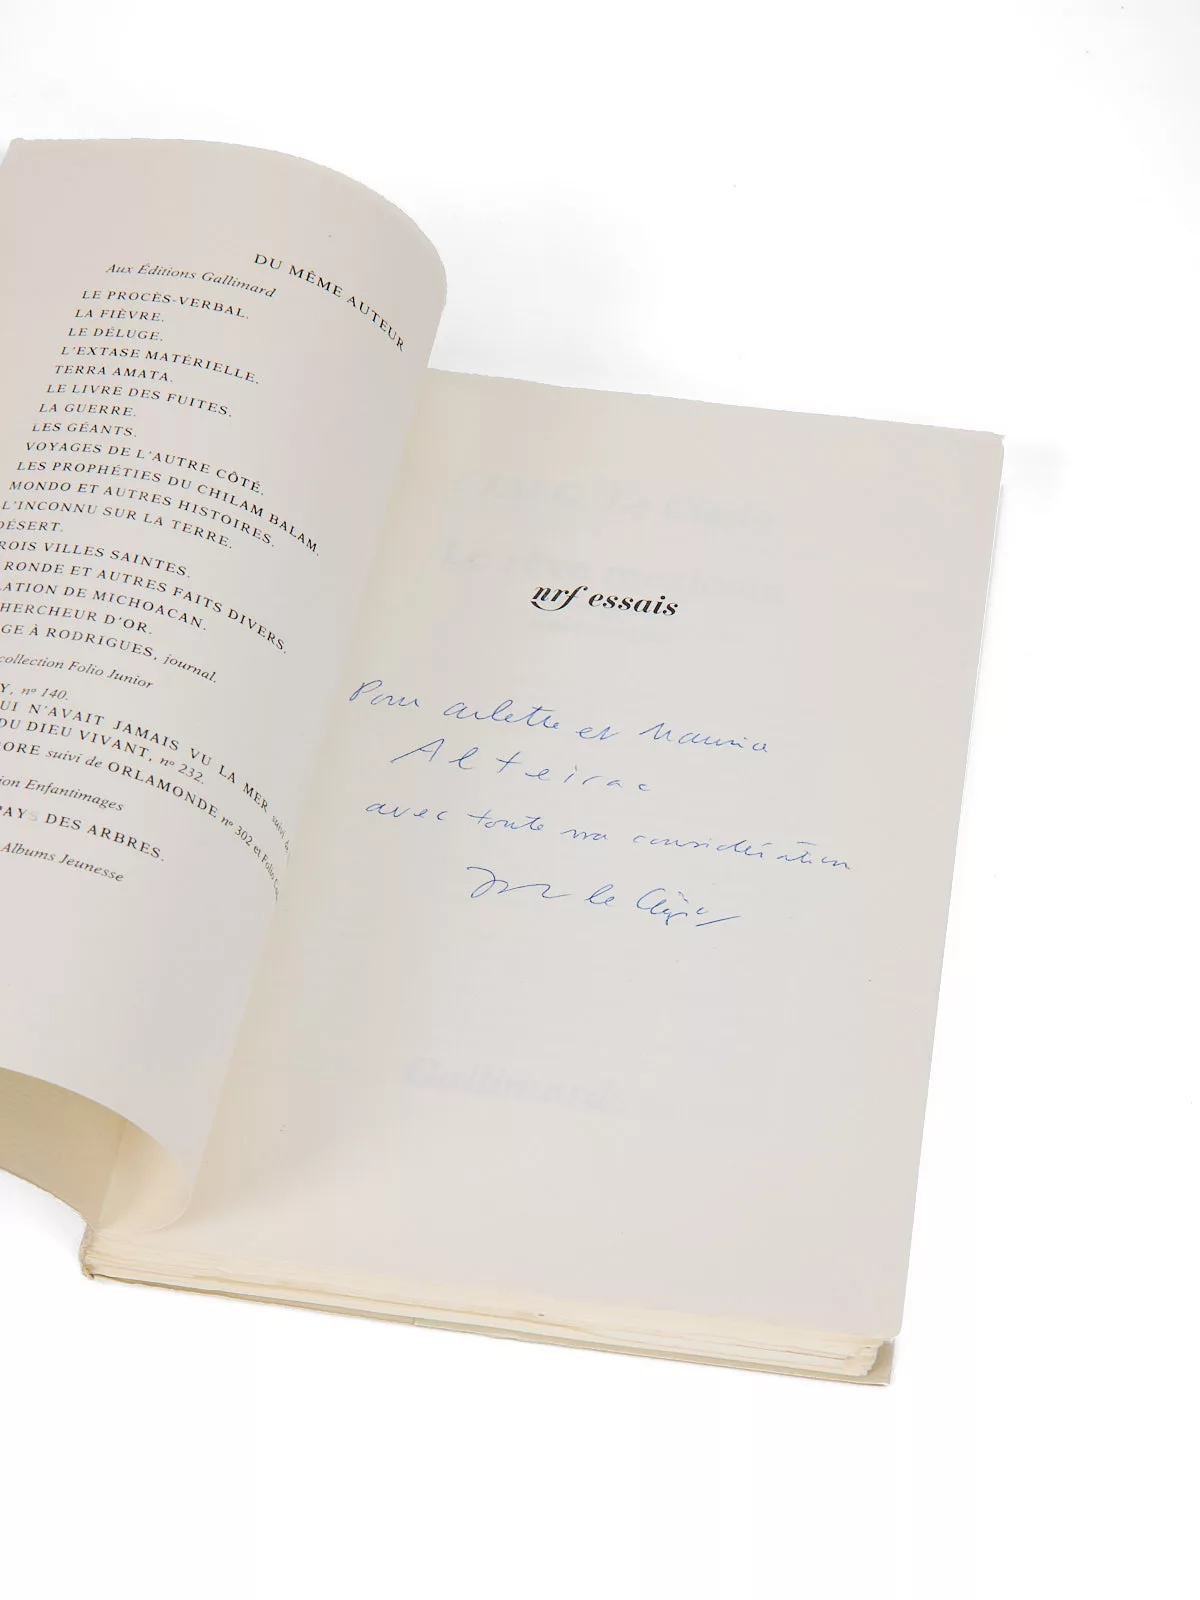 DU MÊME AUTEUR
Aux Éditions Gallimard
LE PROCÈS-VERBAL.
LA FIÈVRE.
LE DÉLUGE.
L'EXTASE MATÉRIELLE.
TERRA AMATA.
LE LIVRE DES FUITES.
LA GUERRE.
LES GÉANTS.
VOYAGES DE L'AUTRE CÔTÉ.
LES PROPHÉTIES DU CHILAM BALAM.
MONDO ET AUTRES HISTOIRES.
L'INCONNU SUR LA TERRE.
DÉSERT.
ROIS VILLES SAINTES.
RONDE ET AUTRES FAITS DIVERS.
LATION DE MICHOACAN.
HERCHEUR D'OR.
GE À RODRIGUES, journal.
collection Folio Junior
Y, nº 140.
UI N'AVAIT JAMAIS VU LA MER suivi de
DU DIEU VIVANT, nº 232.
DORE suivi de ORLAMONDE nº 302 et Folio
ion Enfantimages
PAYS DES ARBRES.
Albums Jeunesse
nrf essais
Pour arlette et Maurice
Alteirac
avec toute ma considération
le Clézio
Gallimard